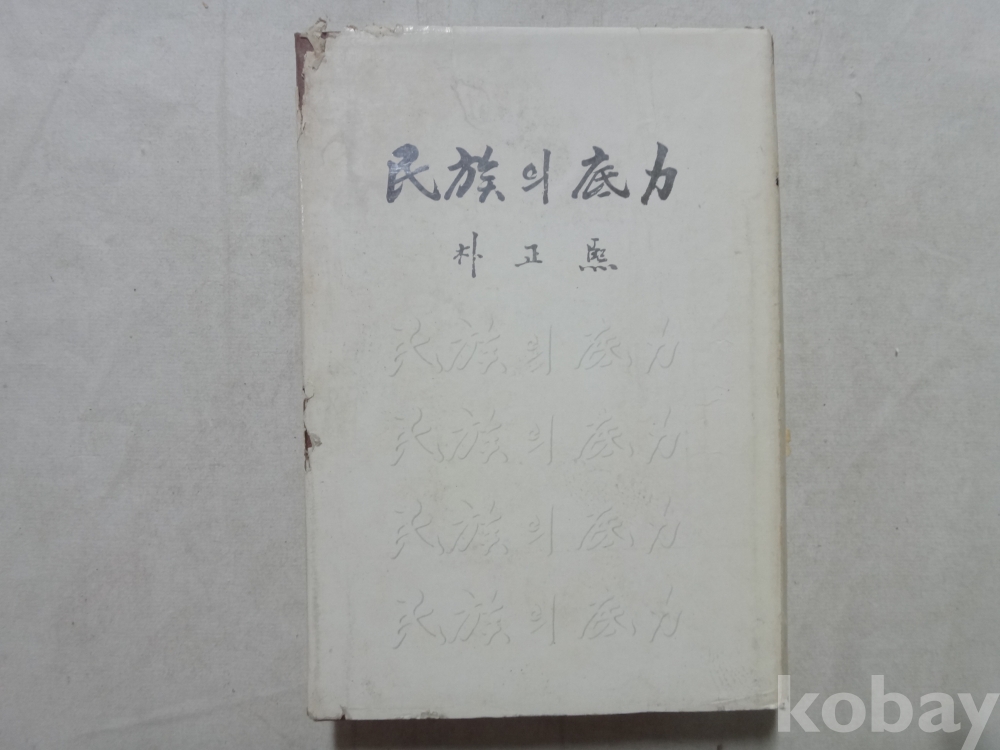 民族의 底力
朴正熙
民族의 底力
民族의 底力
民族의 底力
民族의 底力
kobay